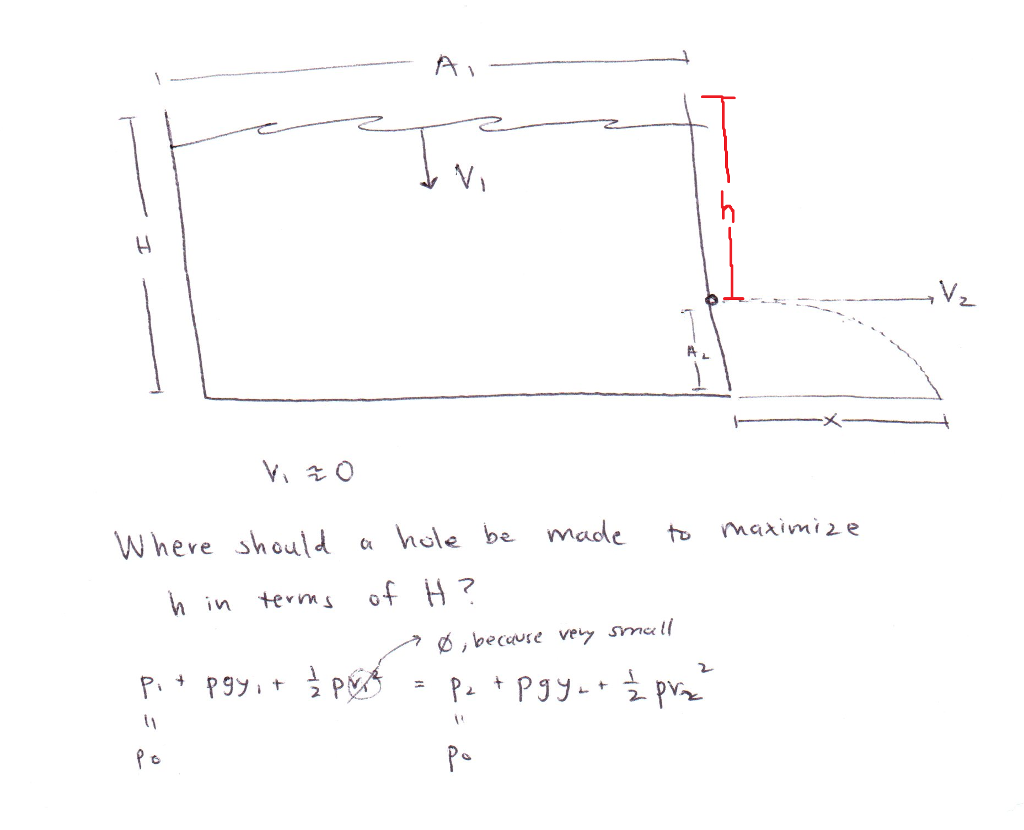 A₁
V₁
H
h
V₂
A₂
x
V₁ ≈ 0
Where should a hole be made to maximize
h in terms of H?
∅, because very small
p₁ + ρgy₁ + ½ ρv₁² = p₂ + ρgy₂ + ½ ρv₂²
" "
p₀ p₀